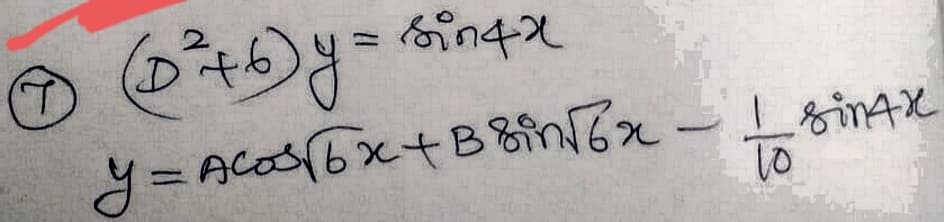 ⑦ (D²+6)y = sin4x
y = Acos√6x + Bsin√6x - 1/10 sin4x